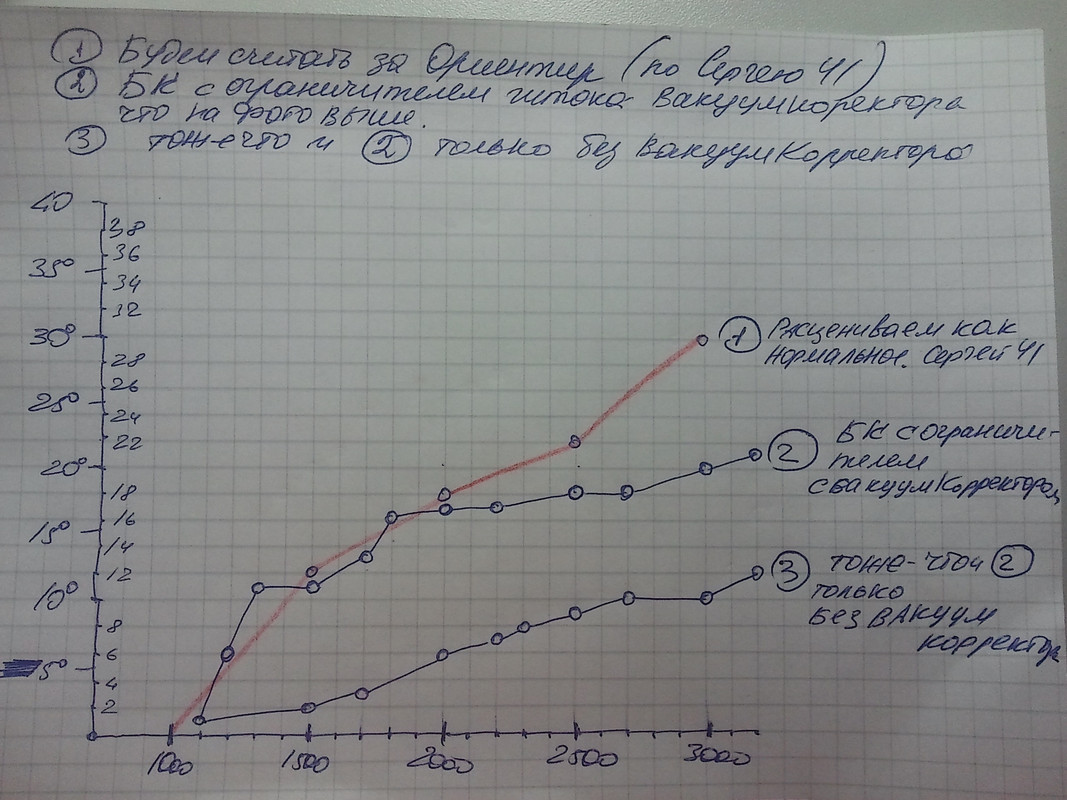 ① Будем считать за Ориентир (по Сергею 41)
② БК с ограничителем штока вакуумкоректора
что на фото выше.
③ тоже что и ② только без вакуумкорректора
40
38
36
35°
34
32
30°
28
26
25°
24
22
20°
18
16
15°
14
12
10°
8
6
5°
4
2
1000 1500 2000 2500 3000
① Расцениваем как
нормальное. Сергей 41
② БК с ограничи-
телем
с вакуумкорректором
③ тоже-что и ②
только
без вакуум
корректор